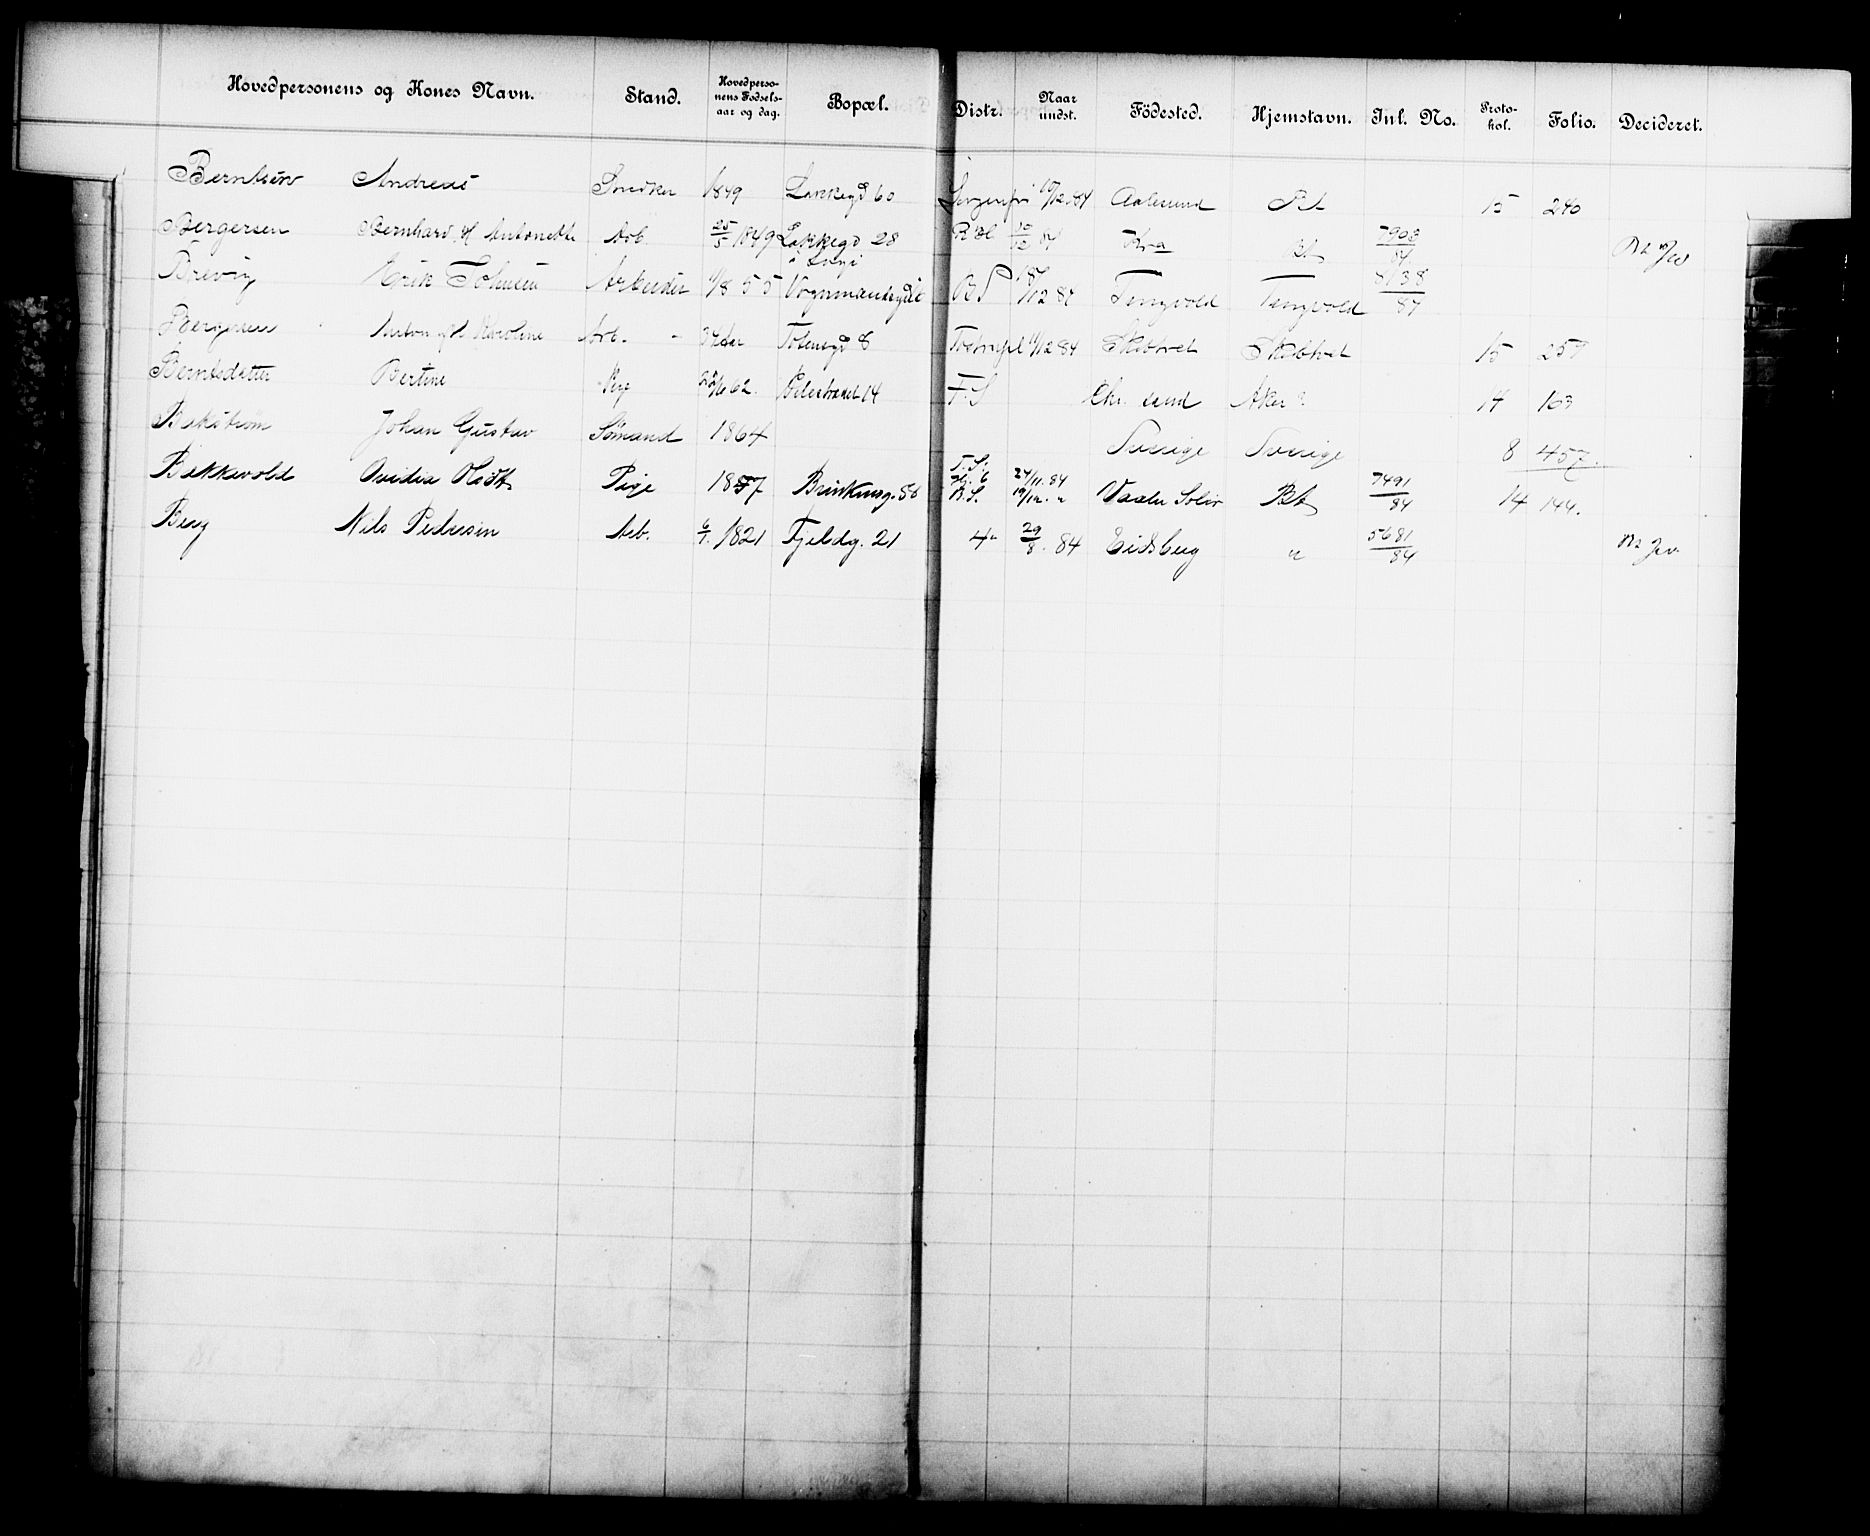 Hovedpersonens og Kones Navn. Stand. Hovedperso-nens Fødsels-aar og dag. Bopæl. Distr. Naar undst. Födested. Hjemstavn. Inl. No. Proto-kol. Folio. Decideret.
Berntsen Andreas Snedker 1849 Lakkegd 60 Sorgenfri 84 Aalesund Bt 15 240
Bergersen Bernhard Antonette Arb. 25/5 1849 Lakkegd 28 10/12 84 Kra Bt 7908/84
Brevig Erik Johnsen Arbeider 1/8 55 Vognmandsgd BS 18/12 84 Tingvold Tingvold 8138/84
Bergersen Anton Karoline Arb. - Totensgd 8 12 84 Skibtvet Skibtvet 15 259
Berntsdatter Bertine Pige 62. 14 F.S Chr. sand Aker ? 14 103
Bakström Johan Gustav Sömand 1864 Sverige Sverige 8 457.
Bakkevold Ovidia Pige 1857 Brinkensg. 86 F.S. B.S. 24/11. 84 19/12. " Vaaler Solør Bt 7491/84 14 144.
Berg Nils Pedersen Arb. 6/1. 1821 Fjeldg. 21 4- 29/8. 84 Eidsberg " 5681/84